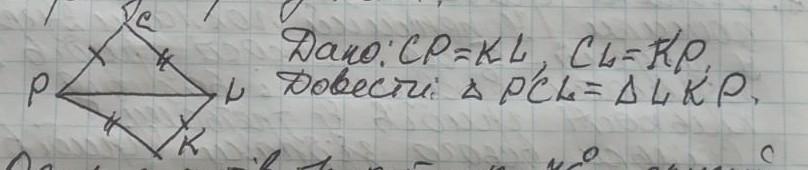 C
Дано: CP=KL, CL=KP.
P L Довести: △ PCL = △ LKP.
K